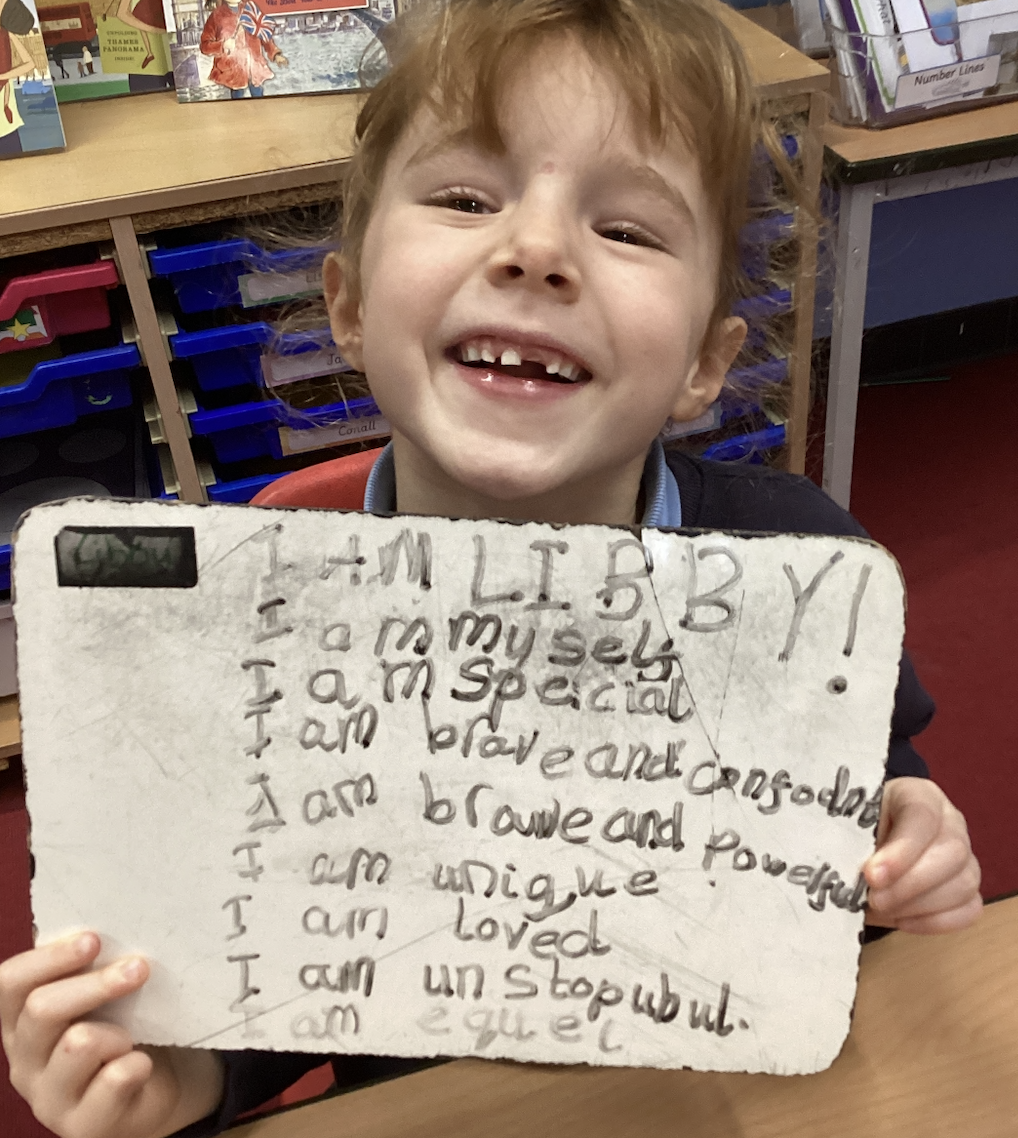 UNFOLDING
THAMES
PANORAMA
INSIDE!
Number Lines
Conall
Libby
I AM LIBBY!
I am myself
I am speicial
I am brave and confodnt
I am brawe and powerful.
I am unique
I am loved
I am unstopubul.
I am equel